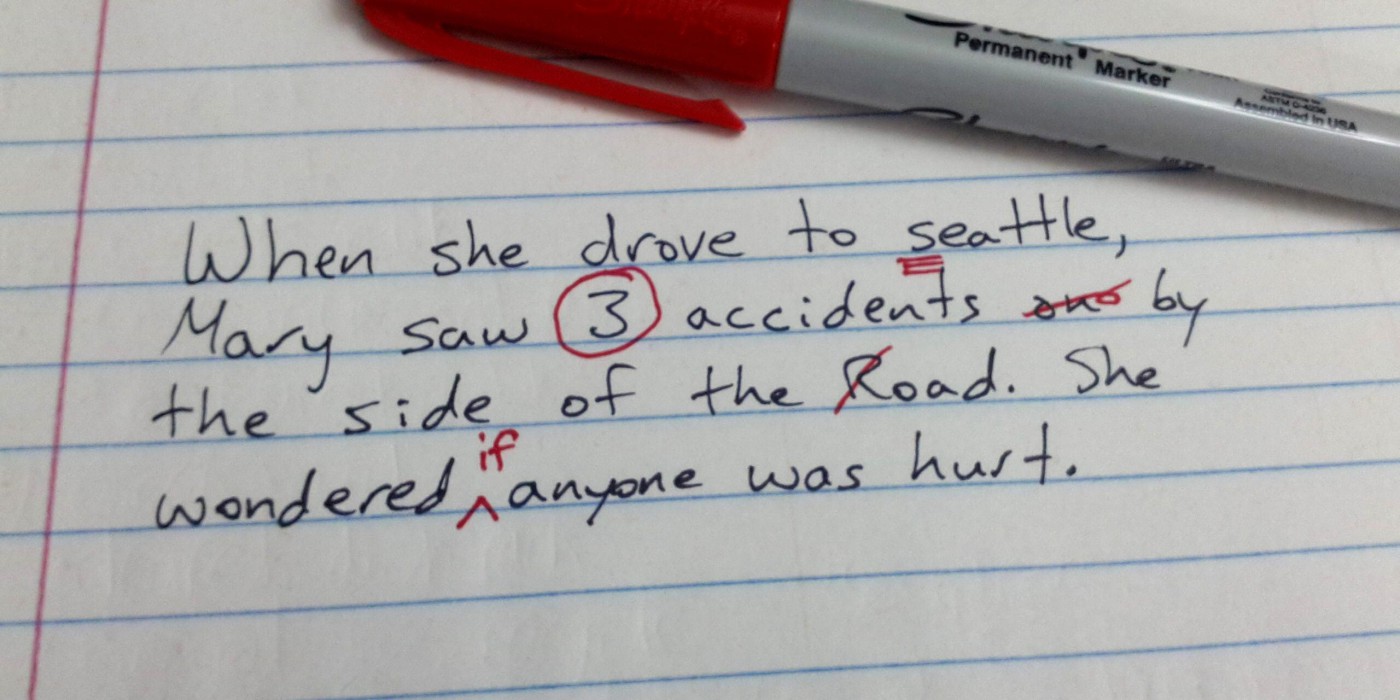 Permanent Marker
ASTM D-4236
Assembled in USA
When she drove to seattle,
Mary saw 3 accidents one by
the side of the Road. She
if
wondered ^ anyone was hurt.